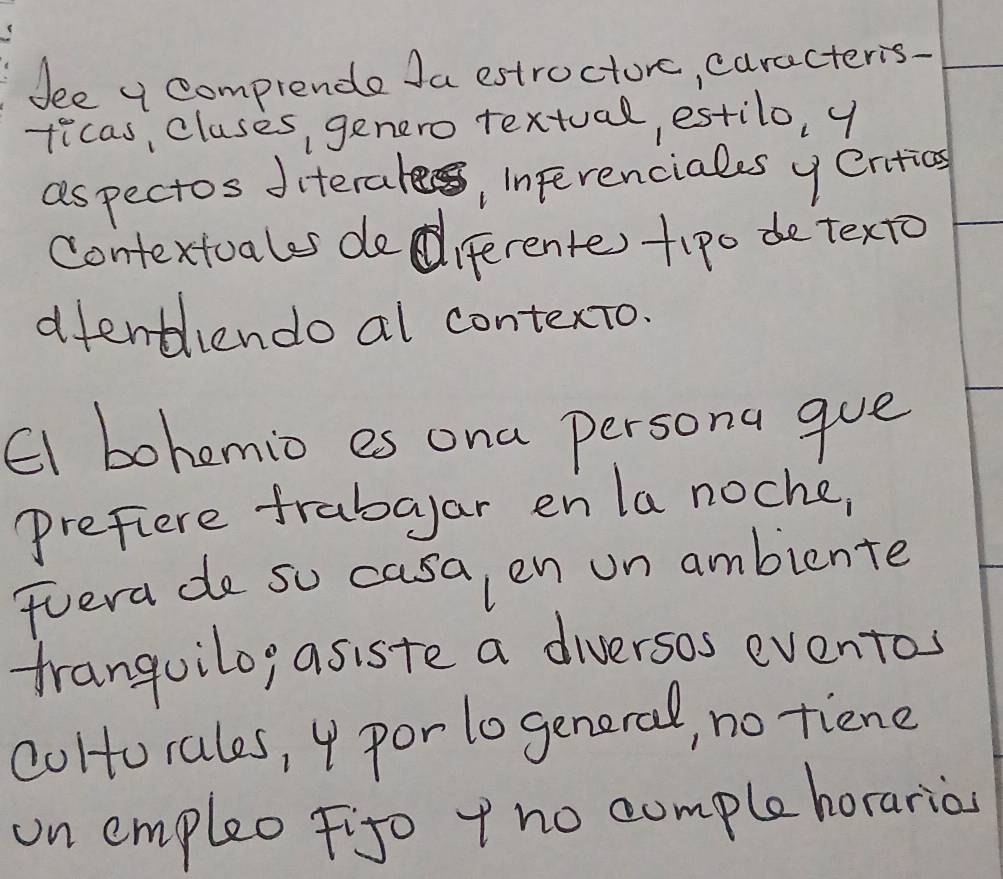 Lee y comprende la estructura, caracterís-
ticas, clases, genero textual, estilo, y
aspectos literales, inferenciales y criticos
contextuales de diferentes tipo de texto
atentdiendo al contexto.
El bohemio es una persona que
prefiere trabajar en la noche,
fuera de su casa, en un ambiente
tranquilo; asiste a diversos eventos
culturales, y por lo general, no tiene
un empleo fijo y no cumple horarios